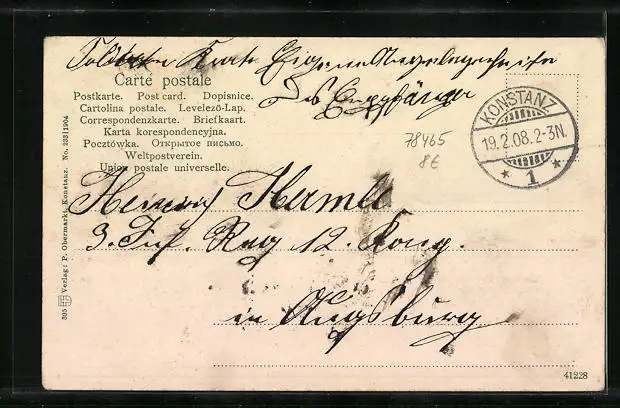 Soldaten Karte Eigene Angelegenheite
Des Empfänger
Carte postale
Postkarte. Post card. Dopisnice.
Cartolina postale. Levelező-Lap.
Correspondenzkarte. Briefkaart.
Karta korespondencyjna.
Pocztówka. Открытое письмо.
Weltpostverein.
Union postale universelle.
KONSTANZ
19.2.08.2-3N.
* 1 *
78465
8€
Heinrich
3. Inf. Reg 12. Komp.
in Augsburg
395 Verlag: P. Obermarkt, Konstanz. No. 2331 1904
41228